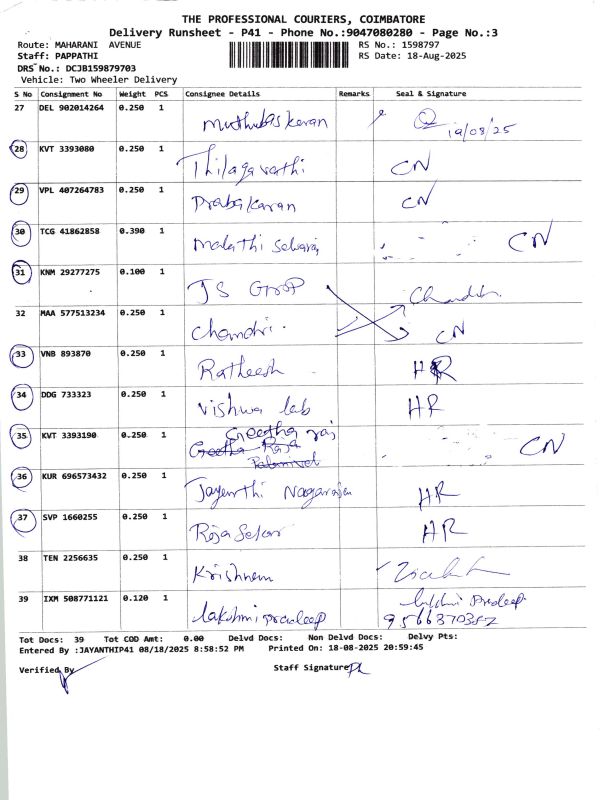 THE PROFESSIONAL COURIERS, COIMBATORE
Delivery Runsheet - P41 - Phone No.:9047080280 - Page No.:3
Route: MAHARANI AVENUE RS No.: 1598797
Staff: PAPPATHI RS Date: 18-Aug-2025
DRS No.: DCJB159879703
Vehicle: Two Wheeler Delivery
S No Consignment No Weight PCS Consignee Details Remarks Seal & Signature
27 DEL 902014264 0.250 1 Muthubaskaran 19/08/25
28 KVT 3393080 0.250 1 Thilagavathi CN
29 VPL 407264783 0.250 1 Prabakaran CN
30 TCG 41862858 0.390 1 Malathi CN
31 KNM 29277275 0.100 1 JS Group
32 MAA 577513234 0.250 1 Chandri. CN
33 VNB 893870 0.250 1 Ratheesh HR
34 DDG 733323 0.250 1 Vishwa lab HR
35 KVT 3393190 0.250 1 Geetha raj CN
Geetha Raja
Palanivel
36 KUR 696573432 0.250 1 Jayanthi Nagarajan HR
37 SVP 1660255 0.250 1 Roja Selvar HR
38 TEN 2256635 0.250 1 Krishnem
39 IXM 508771121 0.120 1 Lakshmi pradeep Lakshmi Pradeep
9566370352
Tot Docs: 39 Tot COD Amt: 0.00 Delvd Docs: Non Delvd Docs: Delvy Pts:
Entered By :JAYANTHIP41 08/18/2025 8:58:52 PM Printed On: 18-08-2025 20:59:45
Verified By Staff Signature